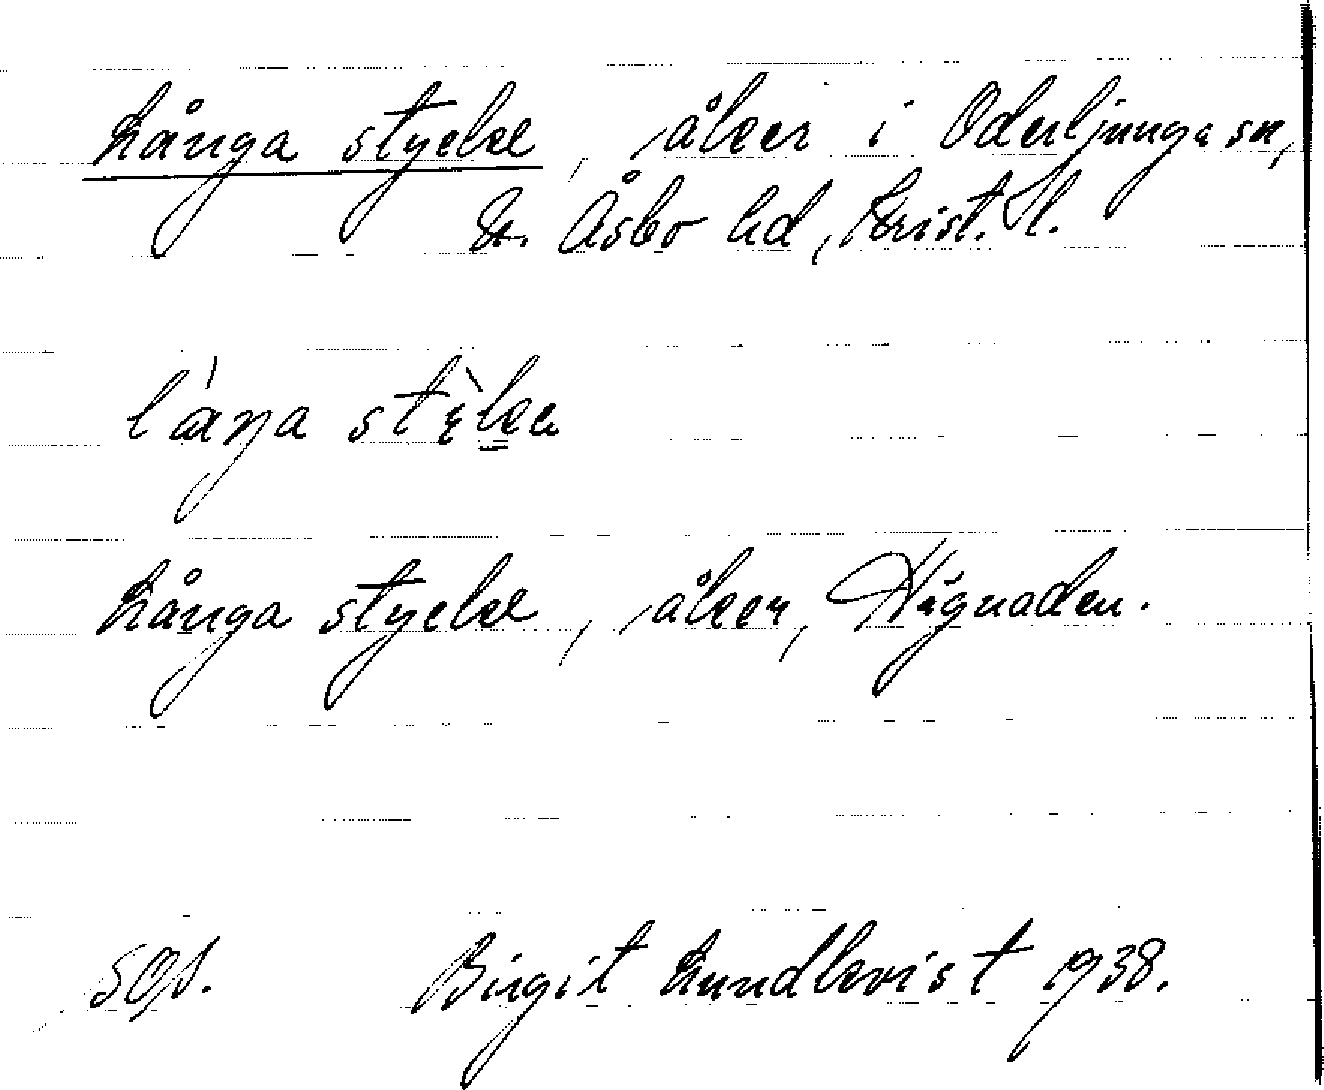 Långa stycke, åker i Oderljunga sn,
N. Åsbo hd, Krist. l.
låŋa stỳke
Långa stycke, åker, Hägnaden.
SOS. Birgit Lundkvist 1938.